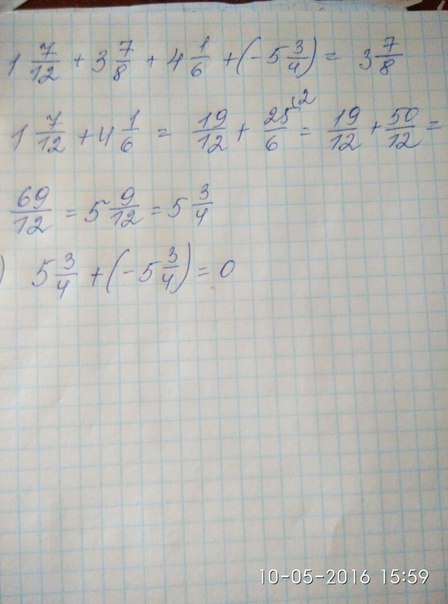 1 7/12 + 3 7/8 + 4 1/6 + (-5 3/4) = 3 7/8
1 7/12 + 4 1/6 = 19/12 + 25/6 ·2 = 19/12 + 50/12 =
69/12 = 5 9/12 = 5 3/4
) 5 3/4 + (-5 3/4) = 0
10-05-2016 15:59